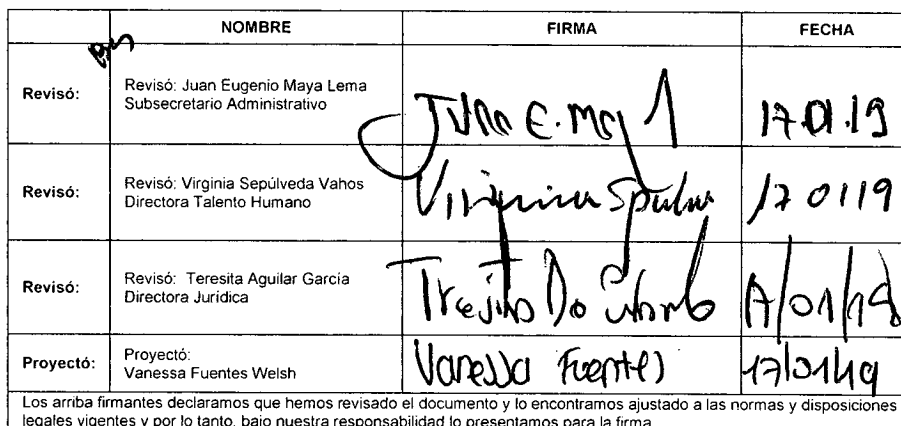 NOMBRE FIRMA FECHA
Revisó: Revisó: Juan Eugenio Maya Lema
Subsecretario Administrativo
Juan E. May 17.01.19
Revisó: Revisó: Virginia Sepúlveda Vahos
Directora Talento Humano
Virginia 17 01 19
Revisó: Revisó: Teresita Aguilar García
Directora Jurídica
17/01/19
Proyectó: Proyectó:
Vanessa Fuentes Welsh
Vanessa Fuentes 17/01/19
Los arriba firmantes declaramos que hemos revisado el documento y lo encontramos ajustado a las normas y disposiciones
legales vigentes y por lo tanto, bajo nuestra responsabilidad lo presentamos para la firma.